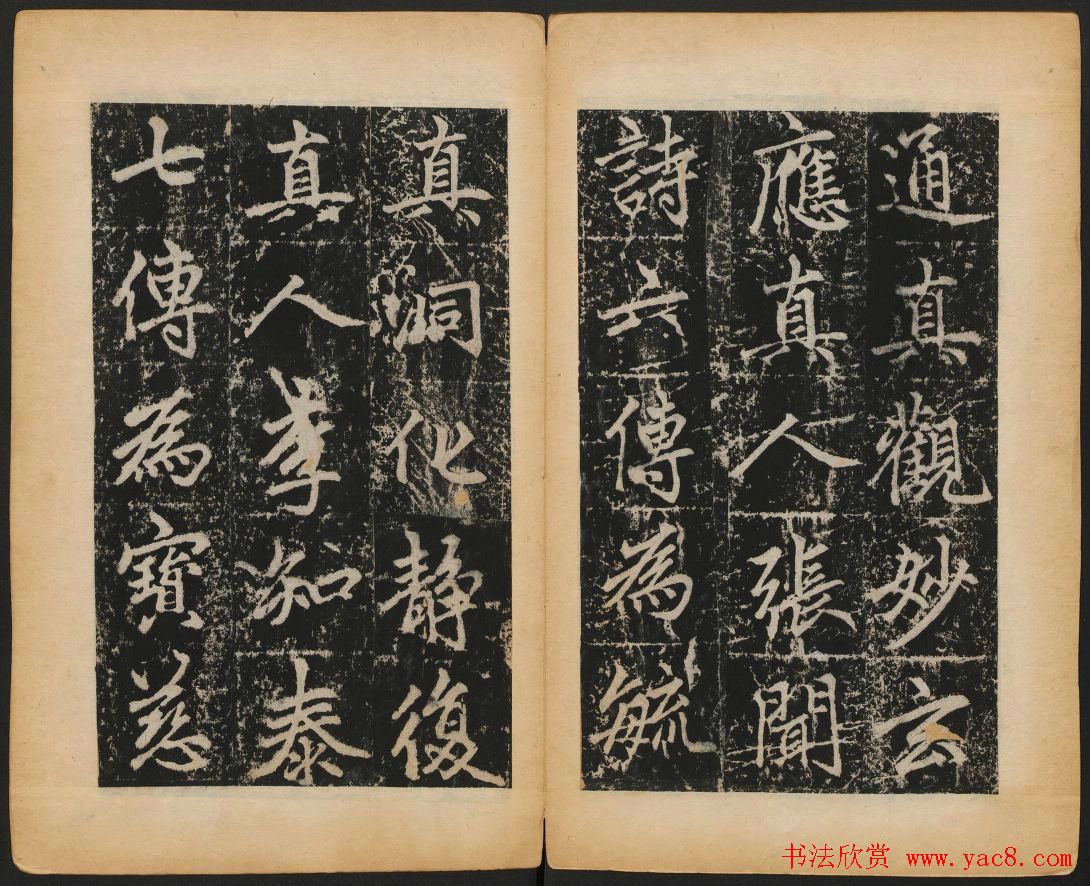 通真觀妙玄
應真人張聞
詩六傳為毓
真洞化靜復
真人李知泰
七傳為寶慈
书法欣赏 www.yac8.com